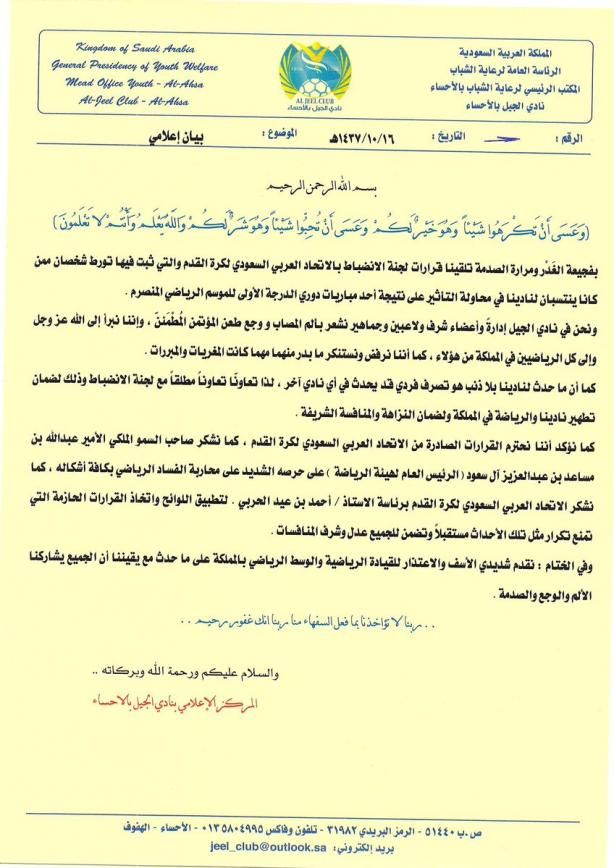 Kingdom of Saudi Arabia
General Presidency of Youth Welfare
Mead Office Youth - Al-Ahsa
Al-Jeel Club - Al-Ahsa
AL JEEL CLUB
نادي الجيل بالأحساء
المملكة العربية السعودية
الرئاسة العامة لرعاية الشباب
المكتب الرئيسي لرعاية الشباب بالأحساء
نادي الجيل بالأحساء
الرقم : التاريخ : ١٤٣٧/١٠/١٦هـ الموضوع : بيان إعلامي
بسم الله الرحمن الرحيم
(وَعَسَى أَنْ تَكْرَهُوا شَيْئاً وَهُوَ خَيْرٌ لَكُمْ وَعَسَى أَنْ تُحِبُّوا شَيْئاً وَهُوَ شَرٌّ لَكُمْ وَاللَّهُ يَعْلَمُ وَأَنْتُمْ لَا تَعْلَمُونَ)
بفجيعة الغَدْر ومرارة الصدمة تلقينا قرارات لجنة الانضباط بالاتحاد العربي السعودي لكرة القدم والتي ثبت فيها تورط شخصان ممن
كانا ينتسبان لنادينا في محاولة التاثير على نتيجة أحد مباريات دوري الدرجة الأولى للموسم الرياضي المنصرم .
ونحن في نادي الجيل إدارةً وأعضاء شرف ولاعبين وجماهير نشعر بألم المصاب و وجع طعن المؤتمن المُطْمَئنَ ، وإننا نبرأ إلى الله عز وجل
وإلى كل الرياضيين في المملكة من هؤلاء ، كما أننا نرفض ونستنكر ما بدر منهما مهما كانت المغريات والمبررات .
كما أن ما حدث لنادينا بلا ذنب هو تصرف فردي قد يحدث في أي نادي آخر ، لذا تعاونّا تعاوناً مطلقاً مع لجنة الانضباط وذلك لضمان
تطهير نادينا والرياضة في المملكة ولضمان النزاهة والمنافسة الشريفة .
كما نؤكد أننا نحترم القرارات الصادرة من الاتحاد العربي السعودي لكرة القدم ، كما نشكر صاحب السمو الملكي الأمير عبدالله بن
مساعد بن عبدالعزيز آل سعود (الرئيس العام لهيئة الرياضة ) على حرصه الشديد على محاربة الفساد الرياضي بكافة أشكاله ، كما
نشكر الاتحاد العربي السعودي لكرة القدم برئاسة الاستاذ / أحمد بن عيد الحربي . لتطبيق اللوائح واتخاذ القرارات الحازمة التي
تمنع تكرار مثل تلك الأحداث مستقبلاً وتضمن للجميع عدل وشرف المنافسات .
وفي الختام : نقدم شديدي الأسف والاعتذار للقيادة الرياضية والوسط الرياضي بالمملكة على ما حدث مع يقيننا أن الجميع يشاركنا
الألم والوجع والصدمة .
.. ربنا لا تؤاخذنا بما فعل السفهاء منا ربنا انك غفور رحيم ..
والسلام عليكم ورحمة الله وبركاته ..
المركز الإعلامي بنادي الجيل بالاحساء
ص.ب ٥١٤٤٠ - الرمز البريدي ٣١٩٨٢ - تلفون وفاكس ٠١٣٥٨٠٤٩٩٥ - الأحساء - الهفوف
بريد إلكتروني: jeel_club@outlook.sa